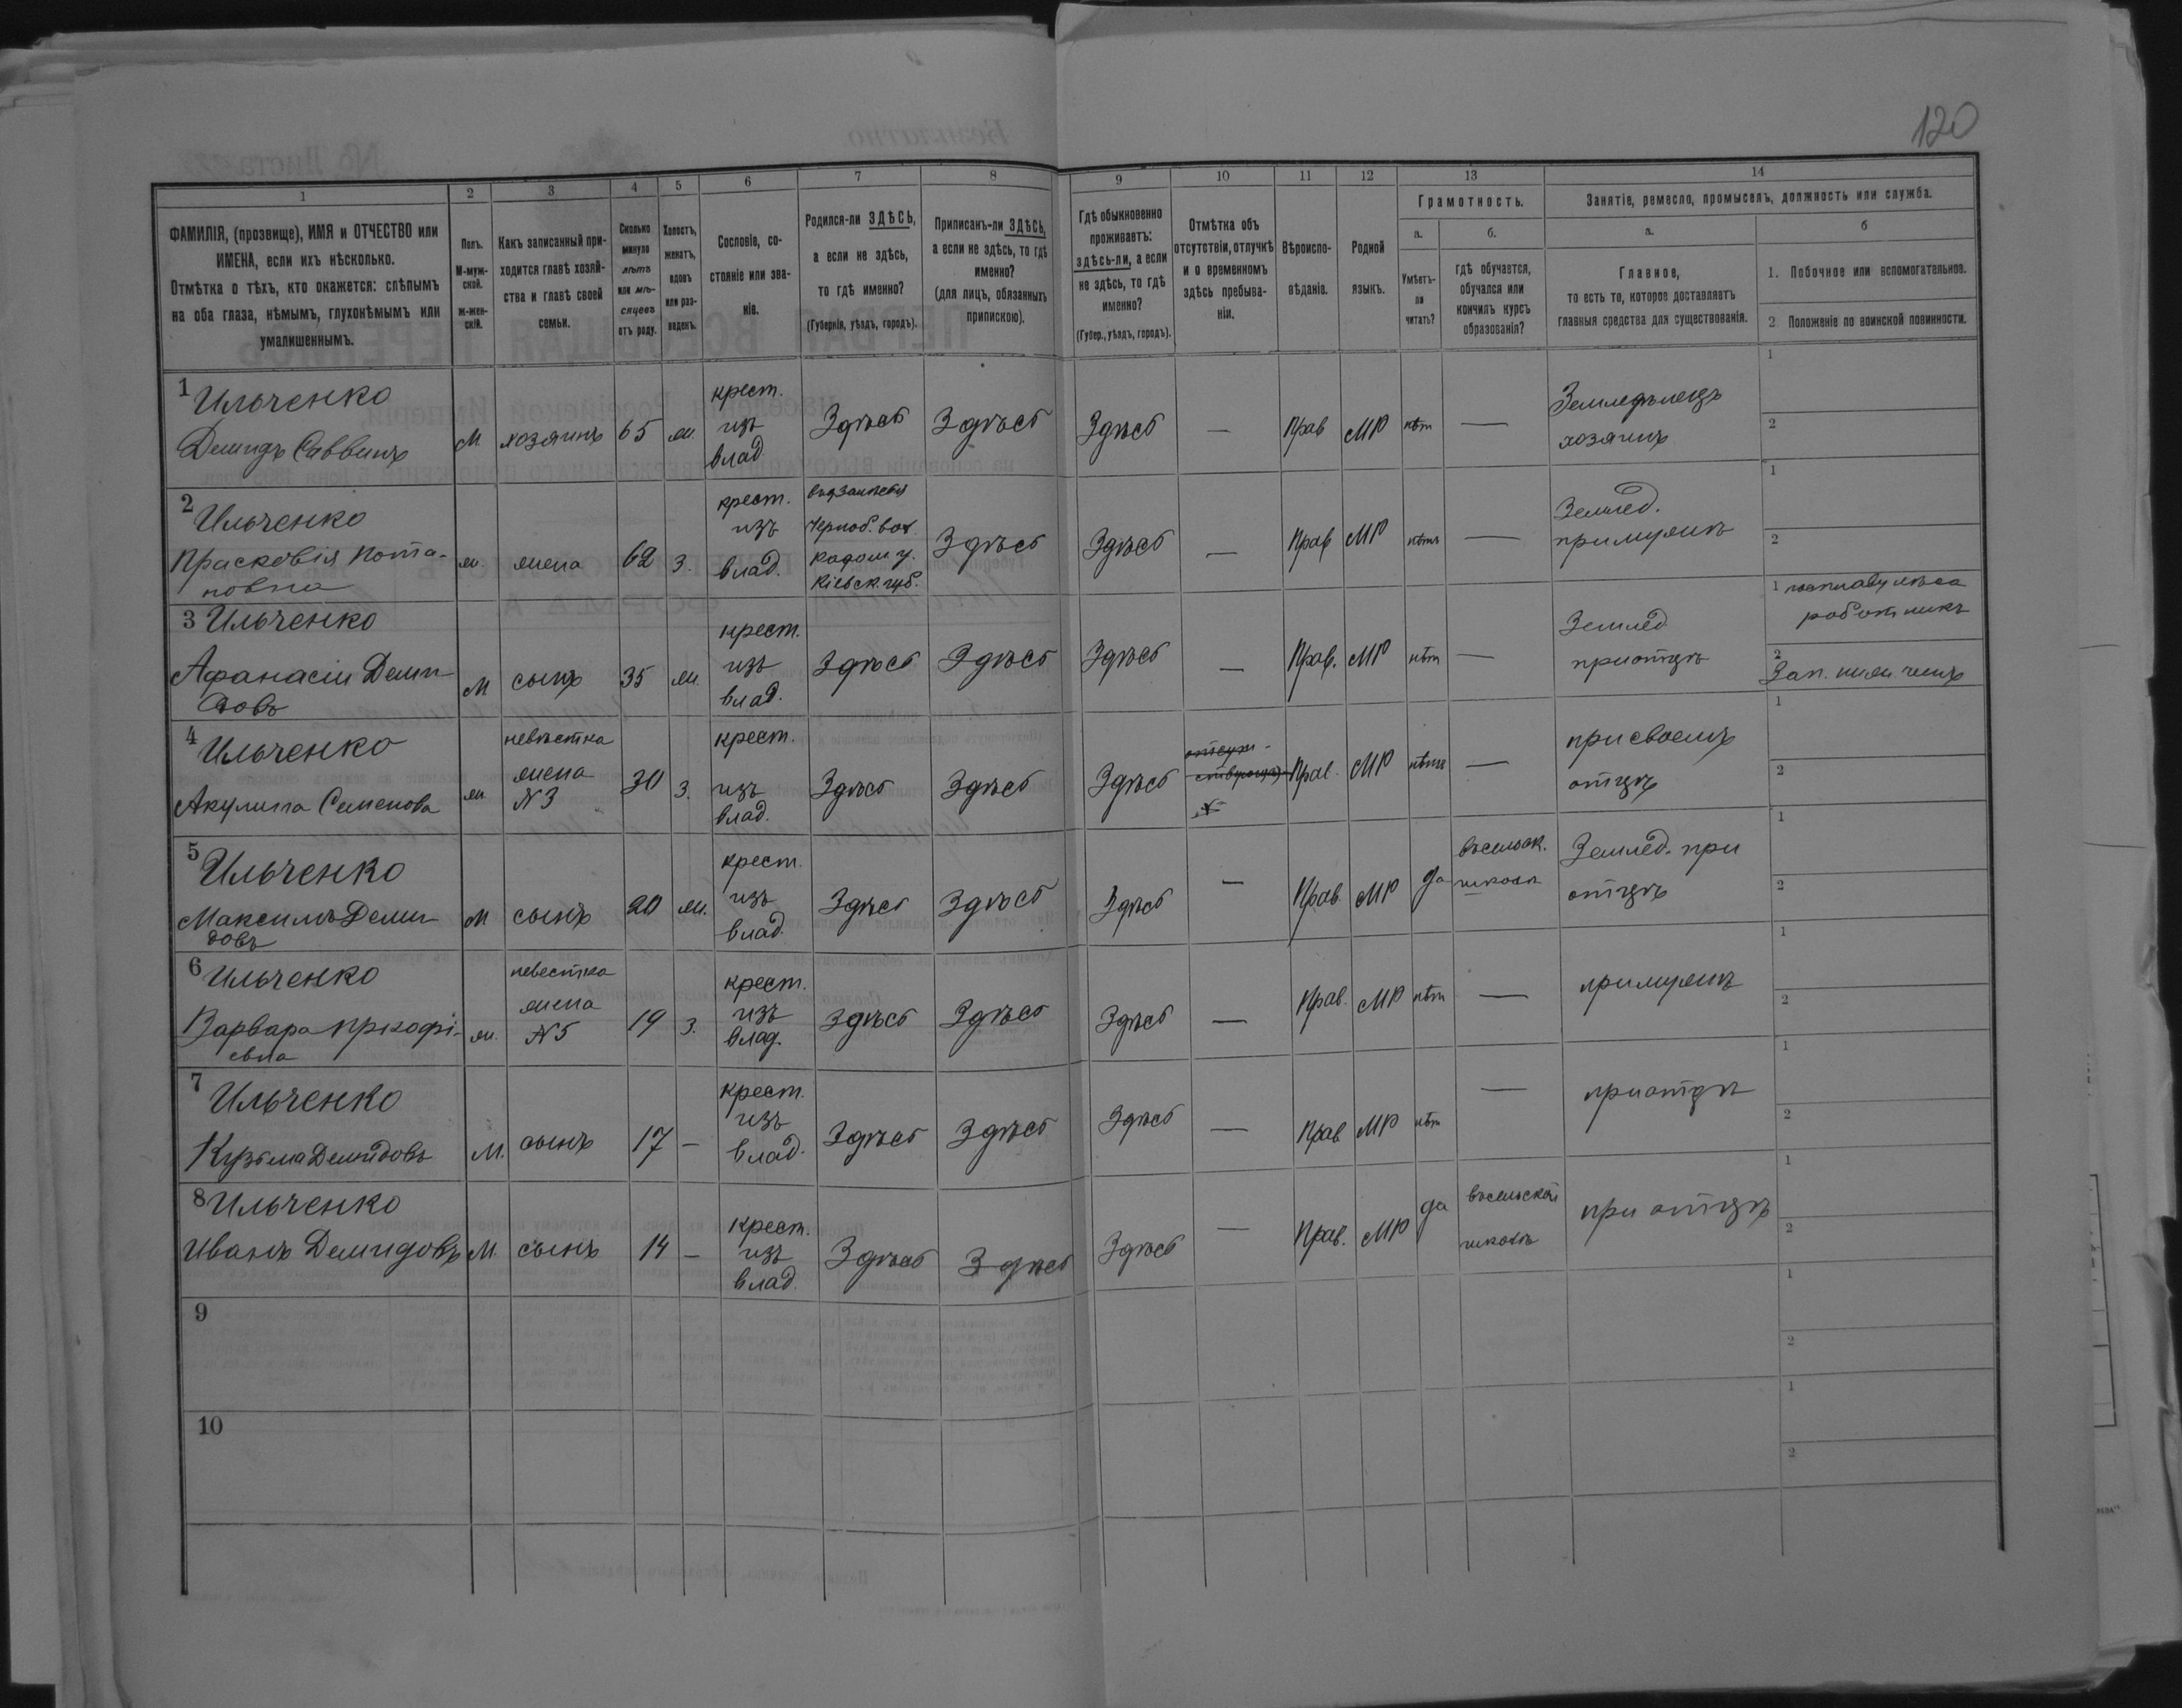 120
1
2
3
4
5
6
7
8
9
10
11
12
13
14
ФАМИЛІЯ, (прозвище), ИМЯ и ОТЧЕСТВО или
ИМЕНА, если ихъ нѣсколько.
Отмѣтка о тѣхъ, кто окажется: слѣпымъ
на оба глаза, нѣмымъ, глухонѣмымъ или
умалишеннымъ.
Полъ.
М-муж-
ской.
Ж-жен-
скій.
Какъ записанный при-
ходится главѣ хозяй-
ства и главѣ своей
семьи.
Сколько
минуло
лѣтъ
или мѣ-
сяцевъ
отъ роду.
Холостъ,
женатъ,
вдовъ
или раз-
веденъ.
Сословіе, со-
стояніе или зва-
ніе.
Родился-ли ЗДѢСЬ,
а если не здѣсь,
то гдѣ именно?
(Губернія, уѣздъ, городъ).
Приписанъ-ли ЗДѢСЬ,
а если не здѣсь, то гдѣ
именно?
(для лицъ, обязанныхъ
припискою).
Гдѣ обыкновенно
проживаетъ:
здѣсь-ли, а если
не здѣсь, то гдѣ
именно?
(Губер., уѣздъ, городъ).
Отмѣтка объ
отсутствіи, отлучкѣ
и о временномъ
здѣсь пребыва-
ніи.
Вѣроиспо-
вѣданіе.
Родной
языкъ.
Грамотность.
а.
Умѣетъ-
ли
читать?
б.
гдѣ обучается,
обучался или
кончилъ курсъ
образованія?
Занятіе, ремесло, промыселъ, должность или служба.
а.
Главное,
то есть то, которое доставляетъ
главныя средства для существованія.
б
1. Побочное или вспомогательное.
2. Положеніе по воинской повинности.
1 Ильченко
Демидъ Саввинъ
М. хозяинъ 65 ж.
крест.
изъ
влад
Здѣсь Здѣсь Здѣсь — Прав МР нѣт —
Земледѣлецъ
хозяинъ
1
2
2 Ильченко
Прасковія Пота-
повна
ж. жена 62 з.
крест.
изъ
влад.
Черноб. вол.
Радом у.
Кіевск. губ.
Здѣсь Здѣсь — Прав МР нѣтъ —
Землед.
при мужѣ
1
2
3 Ильченко
Афанасій Деми-
довъ
М сынъ 35 ж.
крест.
изъ
влад.
Здѣсь Здѣсь Здѣсь — Прав. МР нѣт —
Землед
при отцѣ
1 по сплаву лѣса
работникъ
2
Зап. ниж. чинъ
4 Ильченко
Акулина Семенова
ж.
невѣстка
жена
N 3
30 з.
крест.
изъ
влад.
Здѣсь Здѣсь Здѣсь
отсут-
Прав. МР нѣтъ —
при своемъ
отцѣ
1
2
5 Ильченко
Максимъ Деми-
довъ
М сынъ 20 ж.
крест.
изъ
влад.
Здѣсь Здѣсь Здѣсь — Прав. МР да
въ сельск.
школѣ
Землед. при
отцѣ
1
2
6 Ильченко
Варвара Пркофі-
евна
ж.
невестка
жена
N 5
19 з.
крест.
изъ
влад.
Здѣсь Здѣсь Здѣсь — Прав. МР нѣт —
при мужѣ
1
2
7 Ильченко
Кузьма Демидовъ
М. сынъ 17 —
крест.
изъ
влад.
Здѣсь Здѣсь Здѣсь — Прав МР нѣт —
при отцѣ
1
2
8 Ильченко
Иванъ Демидовъ
М. сынъ 14 —
крест.
изъ
влад.
Здѣсь Здѣсь Здѣсь — Прав. МР да
въ сельской
школѣ
при отцѣ
1
2
9
1
2
10
1
2